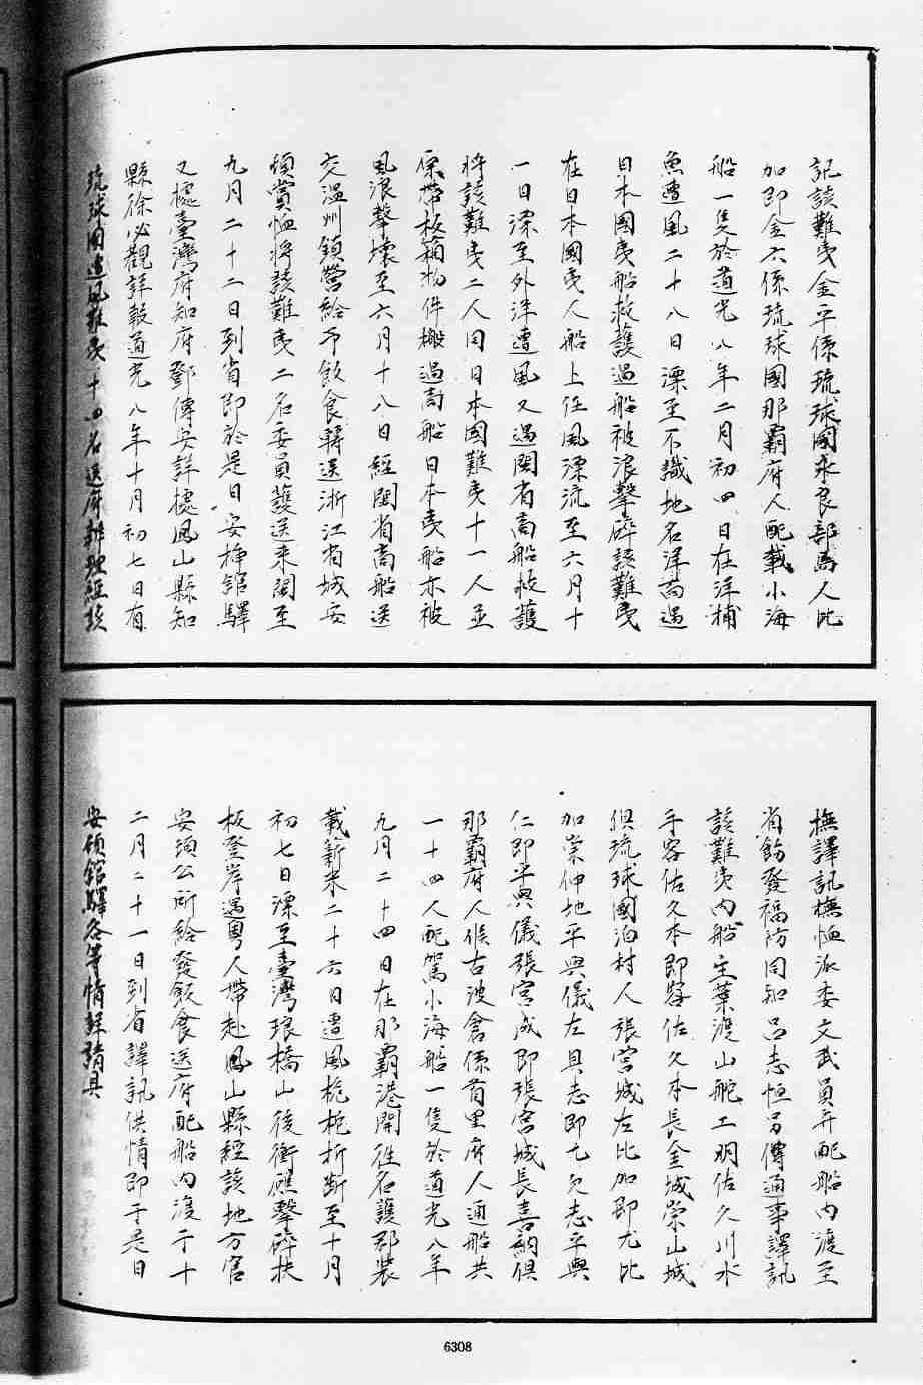 訊該難夷金平係琉球國永良部島人比
加即金六係琉球國那霸府人配載小海
船一隻於道光八年二月初四日在洋捕
魚遭風二十八日漂至不識地名洋面遇
日本國夷船救護過船被浪擊碎該難夷
在日本國夷人船上任風漂流至六月十
一日漂至外洋遭風又遇閩省商船救護
將該難夷二人同日本國難夷十一人並
原帶板箱物件搬過商船日本夷船亦被
風浪擊壞至六月十八日經閩省商船送
交溫州鎮營給予飲食轉送浙江省城安
頓賞恤將該難夷二名委員護送來閩至
九月二十二日到省即於是日安揷館驛
又據臺灣府知府鄧傳安詳據鳳山縣知
縣徐必觀詳報道光八年十月初七日有
琉球國遭風難夷十四名送府辦理經該
撫譯訊撫恤派委文武員弁配船內渡至
省飭發福防同知呂志恒另傳通事譯訊
該難夷內船主葉渡山舵工明佐久川水
手容佐久本即容佐久本長金城崇山城
俱琉球國泊村人張宮城左比加即尤比
加棠仲地平與儀左具志即七欠志平與
仁即平與儀張宮成即張宮城長喜納俱
那霸府人候古波倉係首里府人通船共
一十四人配駕小海船一隻於道光八年
九月二十四日在那霸港開徃名護郡裝
載新米二十六日遭風桅柁折斷至十月
初七日漂至臺灣瑯橋山後衝礁擊碎扶
板登岸遇粵人帶赴鳳山縣經該地方官
安頓公所給發飯食送府配船內渡于十
二月二十一日到省譯訊供情即于是日
安頓館驛各等情詳請具
6308